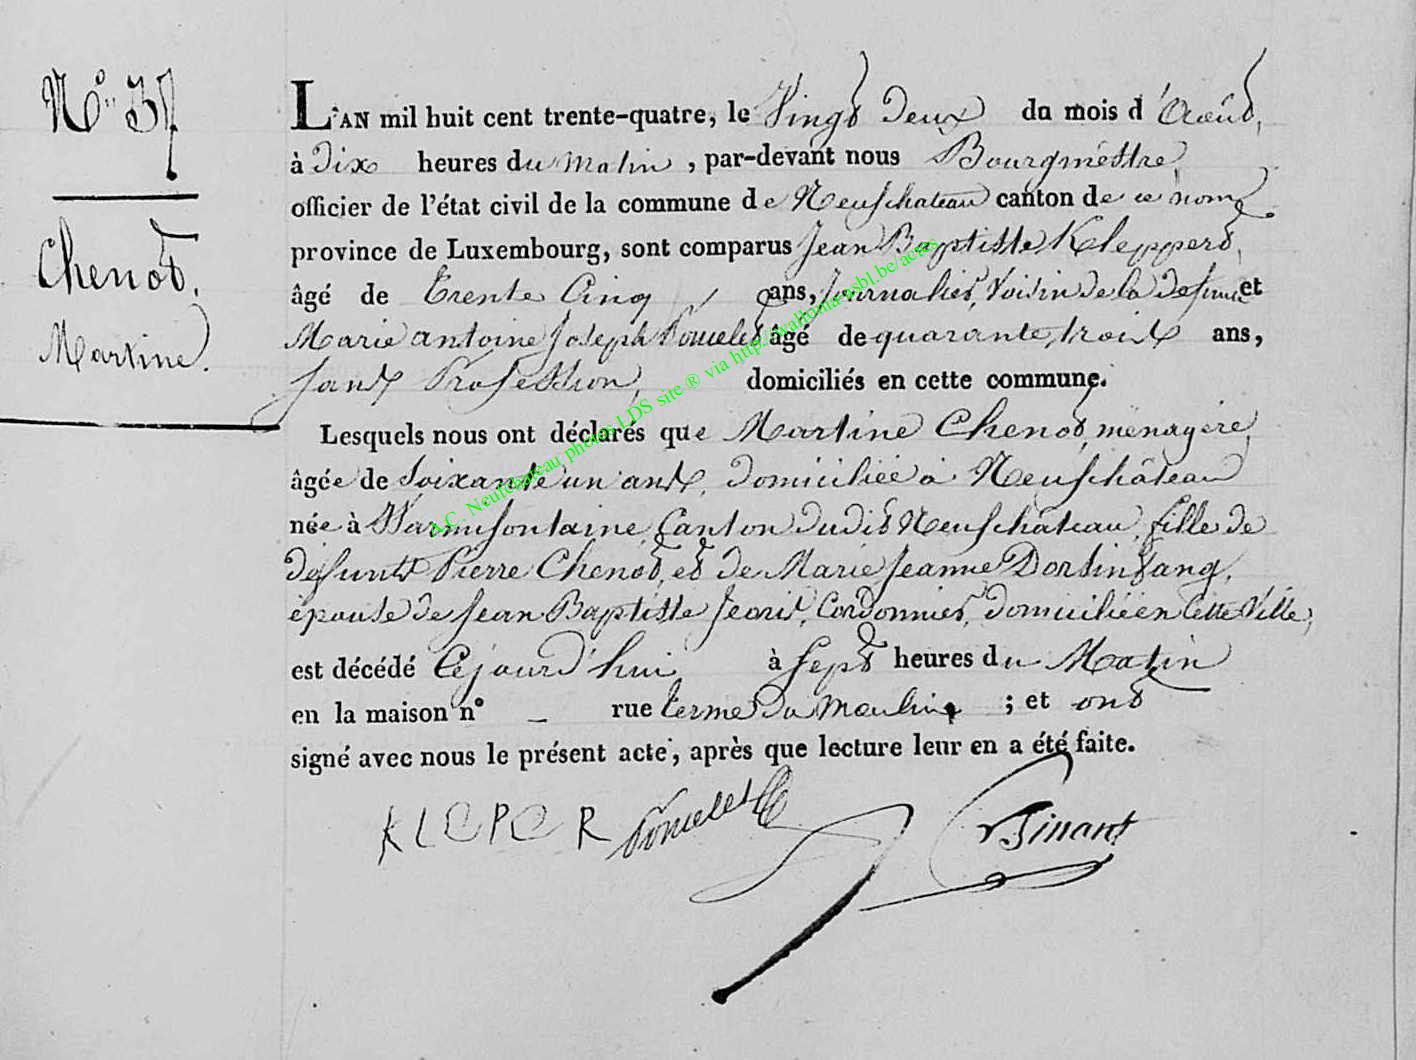 N° 37
Chenot,
Martine.
L'AN mil huit cent trente-quatre, le Vingt Deux du mois d'Août,
à Dix heures du matin, par-devant nous Bourgmestre
officier de l'état civil de la commune de Neufchateau canton de ce nom,
province de Luxembourg, sont comparus Jean Baptiste Kleppert,
âgé de Trente Cinq ans, Journalier, Voisin de la defunte et
Marie antoine Joseph Poncelet âgé de quarante trois ans,
sans Profession, domiciliés en cette commune.
Lesquels nous ont déclarés que Martine Chenot, ménagère,
âgée de Soixante un ans, Domiciliée à Neufchâteau
née à Warmifontaine, Canton dudit Neufchâteau, fille de
defunts Pierre Chenot, et de Marie Jeanne Dortintang,
épouse de Jean Baptiste Jeoris, Cordonnier, domiciliée en cette Ville,
est décédé Cejourd'hui à Sept heures du Matin
en la maison n° _ rue terme du Moulin ; et ont
signé avec nous le présent acte, après que lecture leur en a été faite.
KLEPER Poncelet Tinant
A.C. Neufchateau photos LDS site ® via http://wallonia-asbl.be/actes